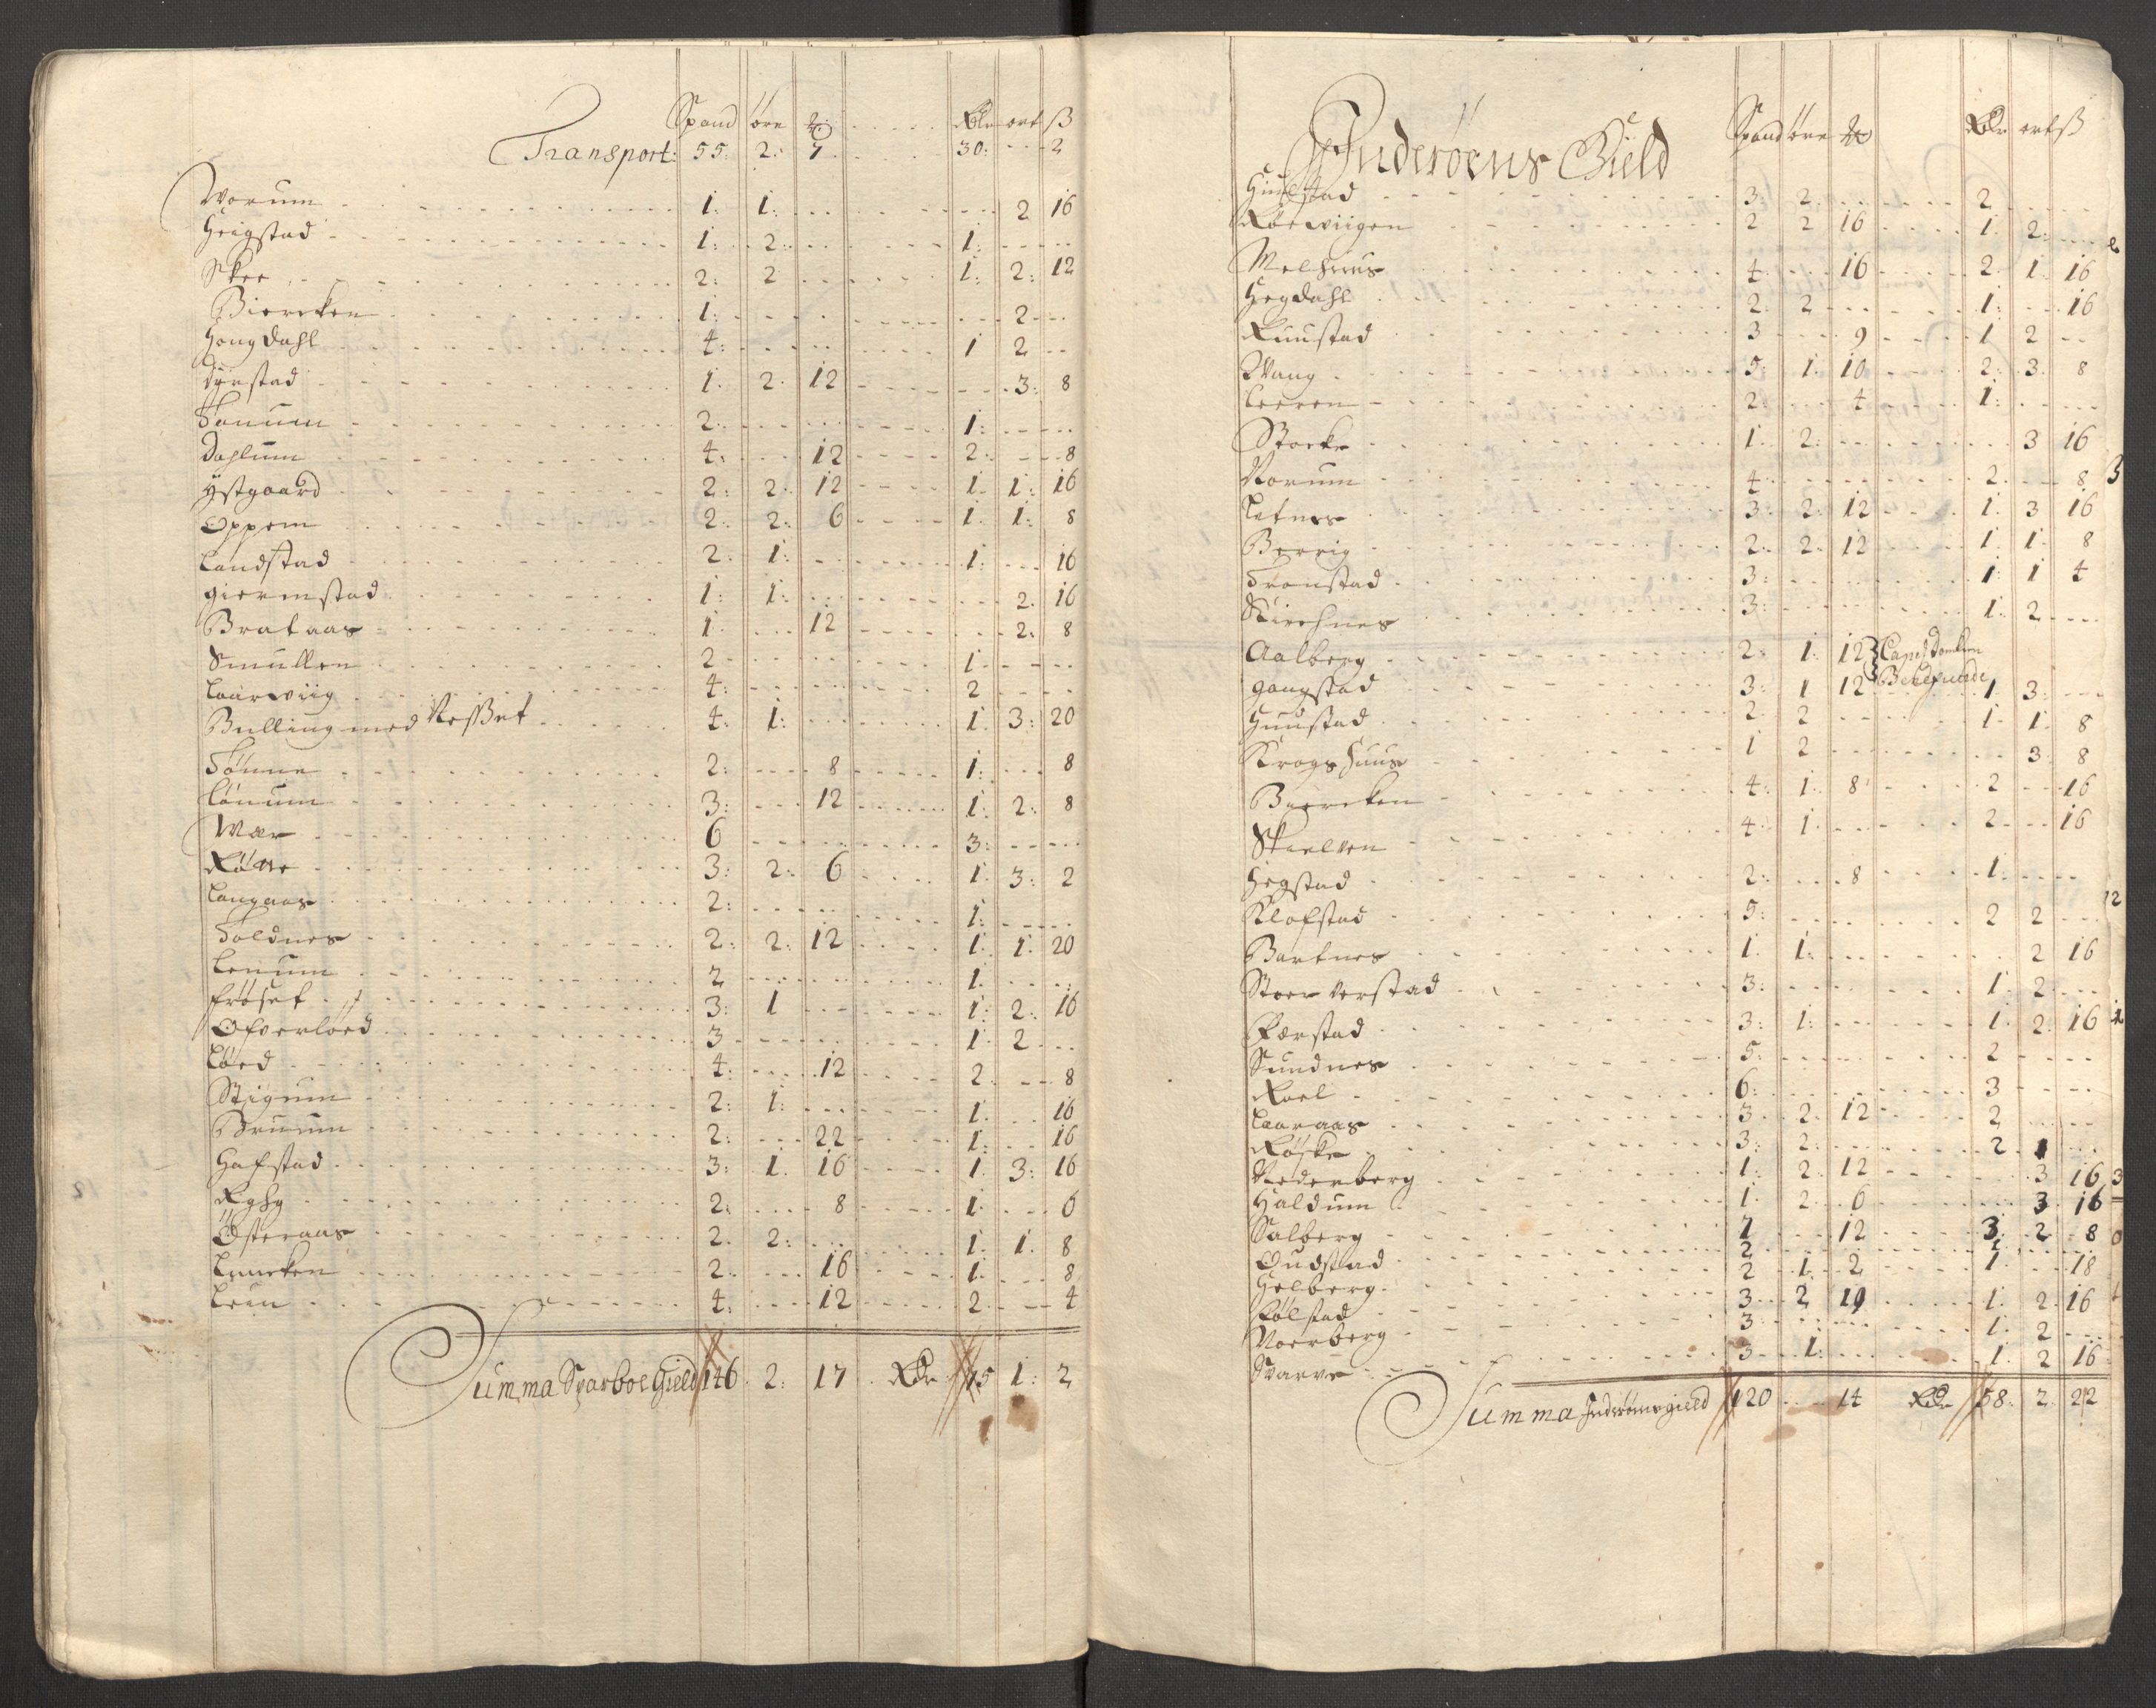 Spand øre ... Rdr ort ß
Transport: 55: 2: 7 30: 2
Worum 1: 1: 2 16
Heigstad 1: 2: 1:
Skee 2: 2 1: 2: 12
Biercken 1: 2
Hongdahl 4: 1 2
Dyrstad 1: 2: 12 3: 8
Tønnum 2: 1:
Dahlum 4: 12 2: 8
Ystgaard 2: 2: 12 1: 1: 16
Oppem 2: 2: 6 1: 1: 8
Landstad 2: 1: 1: 16
Giermstad 1: 1: 2: 16
Brataas 1: 12 2: 8
Smullen 2 1
Laarwiig 4: 2
Bulling med Nesset 4: 1: 1: 3: 20
Tønne 2: 8 1: 8
Lønum 3: 12 1: 2: 8
Wær 6 3:
3: 2: 6 1: 3: 2
Langaas 2: 1:
Foldnes 2: 2: 12 1: 1: 20
Lenum 2 1:
Frøset 3: 1 1: 2: 16
Ofverløed 3 1: 2
Løed 4: 12 2: 8
Stigum 2: 1: 1: 16
Druum 2: 22 1: 16
Hafstad 3: 1: 16 1: 3: 16
Ryghg 2: 8 1: 6
Østeraas 2: 2: 1: 1: 8
Luncken 2: 16 1: 8
Leun 4: 12 2: 4
Summa Sparboe Gield 146 2: 17 Rdr 75 1: 2
Inderøens Gield
Spand øre ... Rdr ort ß
Hiulstad 3 2 2
Rørwiigen 2 2 16 1: 2:
Melhuus 4: 16 2: 1: 16
Hegdahl 2: 2 1: 16
Ruustad 3 9 1 2
Wang 5: 1: 10 2: 3: 8
Leeren 2: 4 1:
Storke 1: 2: 3 16
Norum 4: 2: 8
Letnes 3: 2: 12 1: 3 16
Berrig 2: 2: 12 1: 1: 8
Tronstad 3: 1: 1 4
Kirchnes 3: 1: 2
Aalberg 2: 1: 12
Gangstad 3: 1 12 1 3:
Huustad 2: 2 1: 1: 8
Krogshuus 1 2 3: 8
Biercken 4: 1: 8 2 16
Skielven 4: 1: 2 16
Hegstad 2: 8 1:
Klofstad 5: 2 2
Bartnes 1: 1: 2 16
Stoer Verstad 3: 1: 2:
Perstad 3: 1: 1: 2: 16
Sundnes 5: 2
Roel 6: 3
Laaraas 3: 2: 12 2
Røske 3: 2: 2 1
Nederberg 1: 2: 12 3 16
Haldum 1: 2: 6 3 16
Salberg 7 12 3: 2 8
Oudstad 2 1
Helberg 2 1: 2 1: 18
Følstad 3 2 19 1: 2: 16
Noerberg 3 1: 2
Svarve 3 1: 1: 2 16
Summa Inderøens gield 120 14 Rdr 58: 2: 22